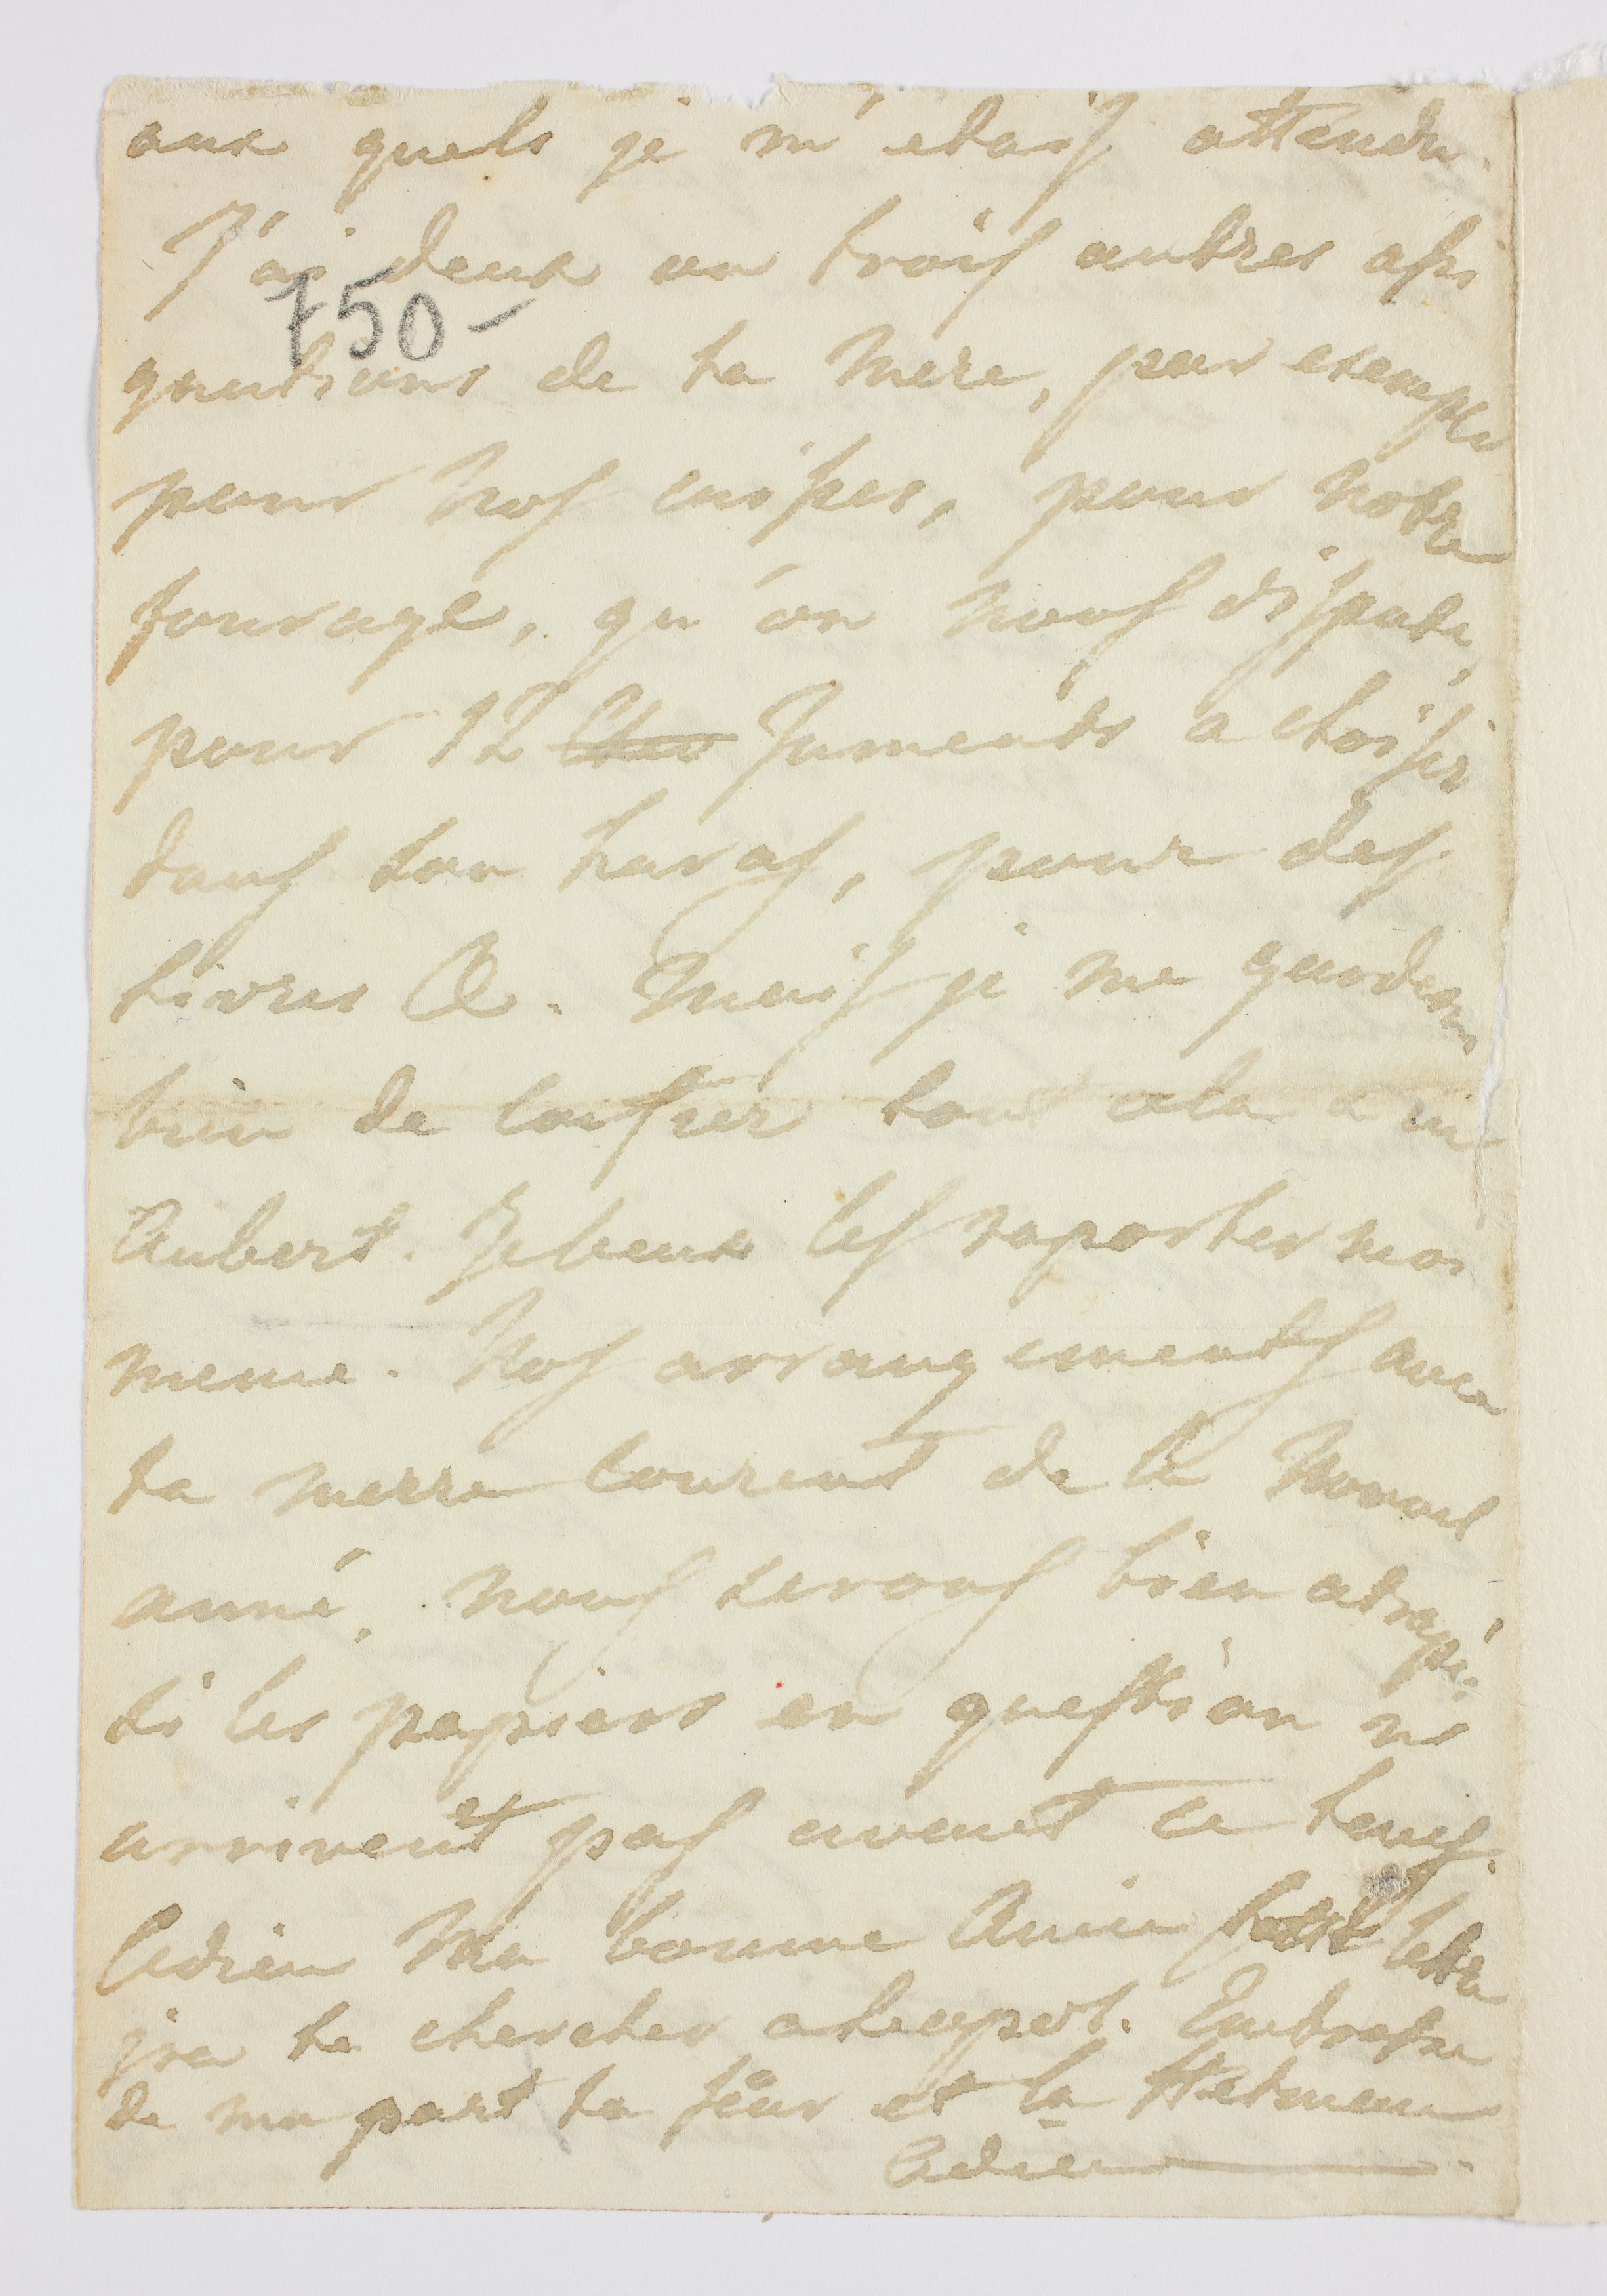 aux quels je m'etais attendu.
J'ai deux ou trois autres assi
750-
gnations de ta Mere, par exemple
pour nos caisses, pour notre
fourage, qu'on nous dispute,
pour 12 Juments a choisir
dans son haras, pour des
livres &. Mais je me garderai
bien de laisser tout cela a un
Aubert. Je veux les raporter moi
meme. Nos arrangements avec
ta merre courent de la nouvel
anné, nous serons bien atrapés
si les papiers en question ne
arrivent pas avant ce temps.
Adieu Ma bonne Amie lettre
ira te chercher a. Embrasse
de ma part ta sœur et la Hetmann
Adieu.